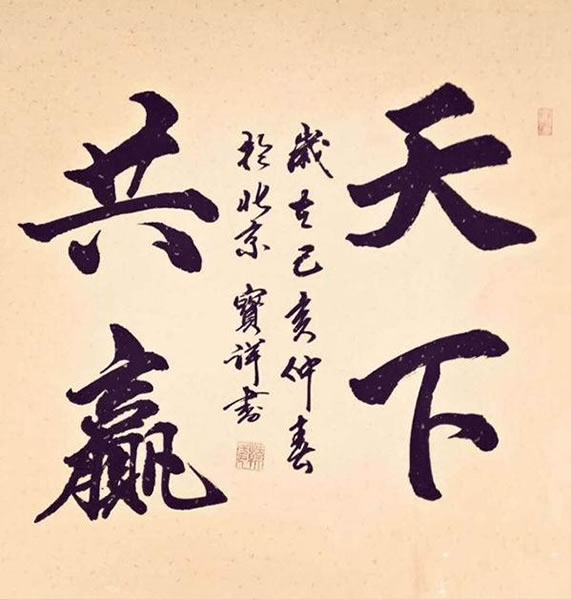 天下
歲在己亥仲春
於北京 寶詳書
共贏